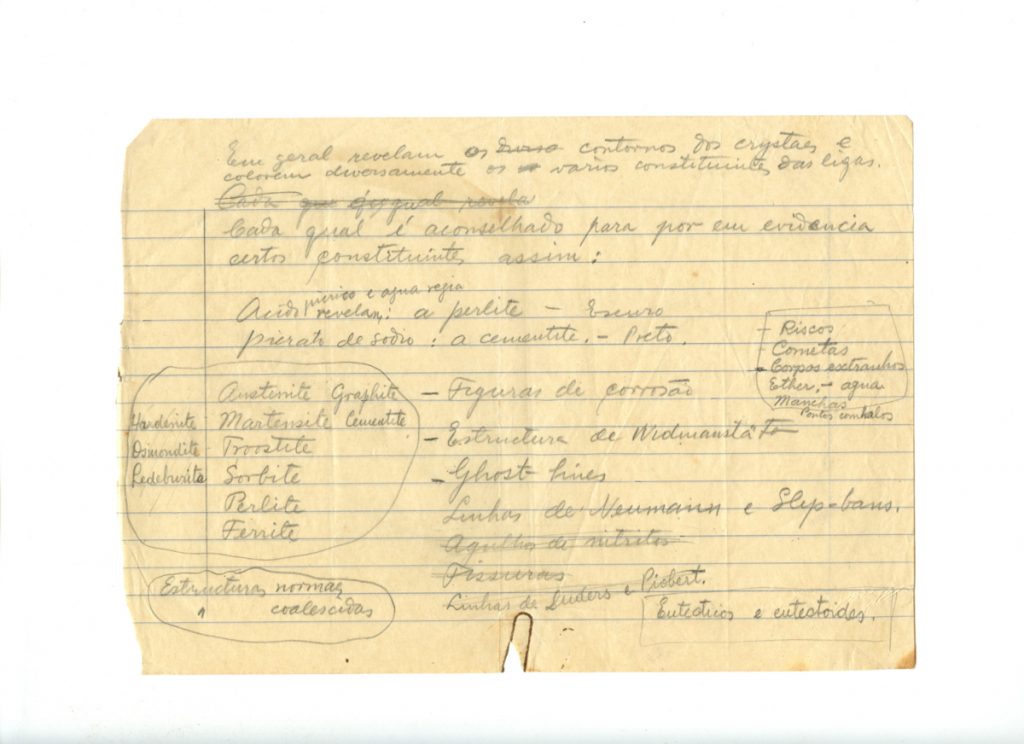 Em geral revelam os contornos dos crystaes e
colorem diversamente os varios constituintes das ligas.
Cada que qual revela
Cada qual é aconselhado para por em evidencia
certos constituintes assim:
Acido picrico e agua regia
revelam: a perlite - Escuro
picrato de sodio: a cementite. - Preto.
- Riscos
- Cometas
- Corpos extranhos
Ether. - agua
Manchas
Pontos com halos
Austenite Graphite
Hardenite Martensite Cementite
Osmondite Troostite
Ledeburita Sorbite
Perlite
Ferrite
- Figuras de corrosão
- Estructura de Widmanstä
- Ghost-lines
Linhas de Neumann e Slip-bans.
Agulhas de nitritos
Fissuras
Linhas de Luders e Piobert.
Estructuras normaes
" coalescidas
Eutecticos e eutectoides.